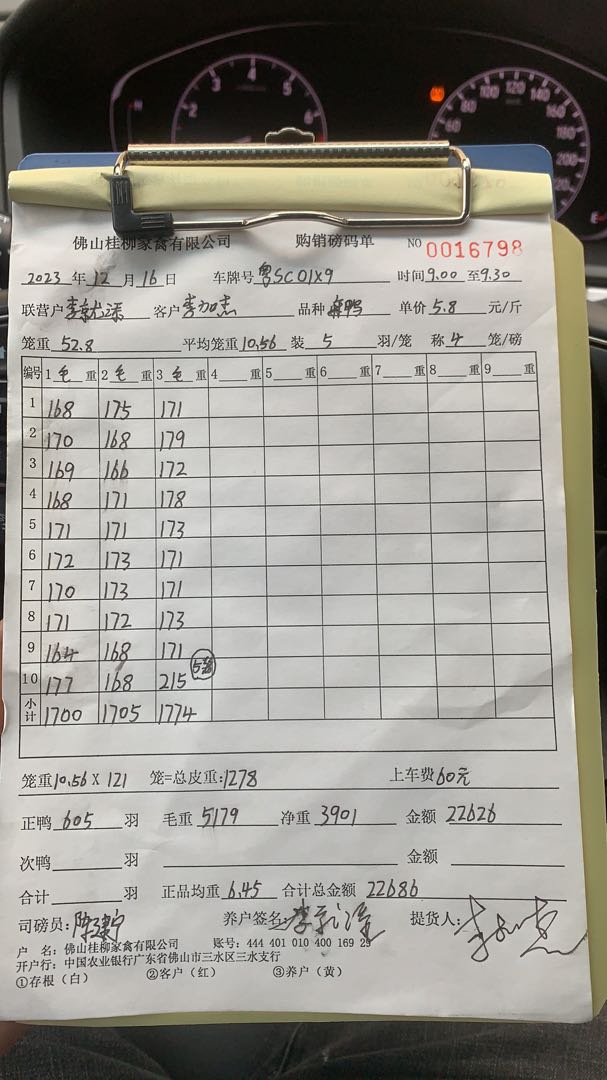 佛山桂柳家禽有限公司 购销磅码单 NO 0016798
2023 年 12 月 16 日 车牌号 粤SC01X9 时间 9.00 至 9.30
联营户 客户 李加志 品种 单价 5.8 元/斤
笼重 52.8 平均笼重 10.56 装 5 羽/笼 称 4 笼/磅
编号 1 毛 重 2 毛 重 3 毛 重 4 重 5 重 6 重 7 重 8 重 9 重
1 168 175 171
2 170 168 179
3 169 166 172
4 168 171 178
5 171 171 173
6 172 173 171
7 170 173 171
8 171 172 173
9 164 168 171
10 177 168 215 5笼
小计 1700 1705 1774
笼重 10.56 X 121 笼=总皮重: 1278 上车费 60元
正鸭 605 羽 毛重 5179 净重 3901 金额 22626
次鸭 羽 金额
合计 羽 正品均重 6.45 合计总金额 22686
司磅员: 养户签名: 提货人: 李加志
户 名: 佛山桂柳家禽有限公司 账号: 444 401 010 400 169 29
开户行: 中国农业银行广东省佛山市三水区三水支行
①存根（白） ②客户（红） ③养户（黄）